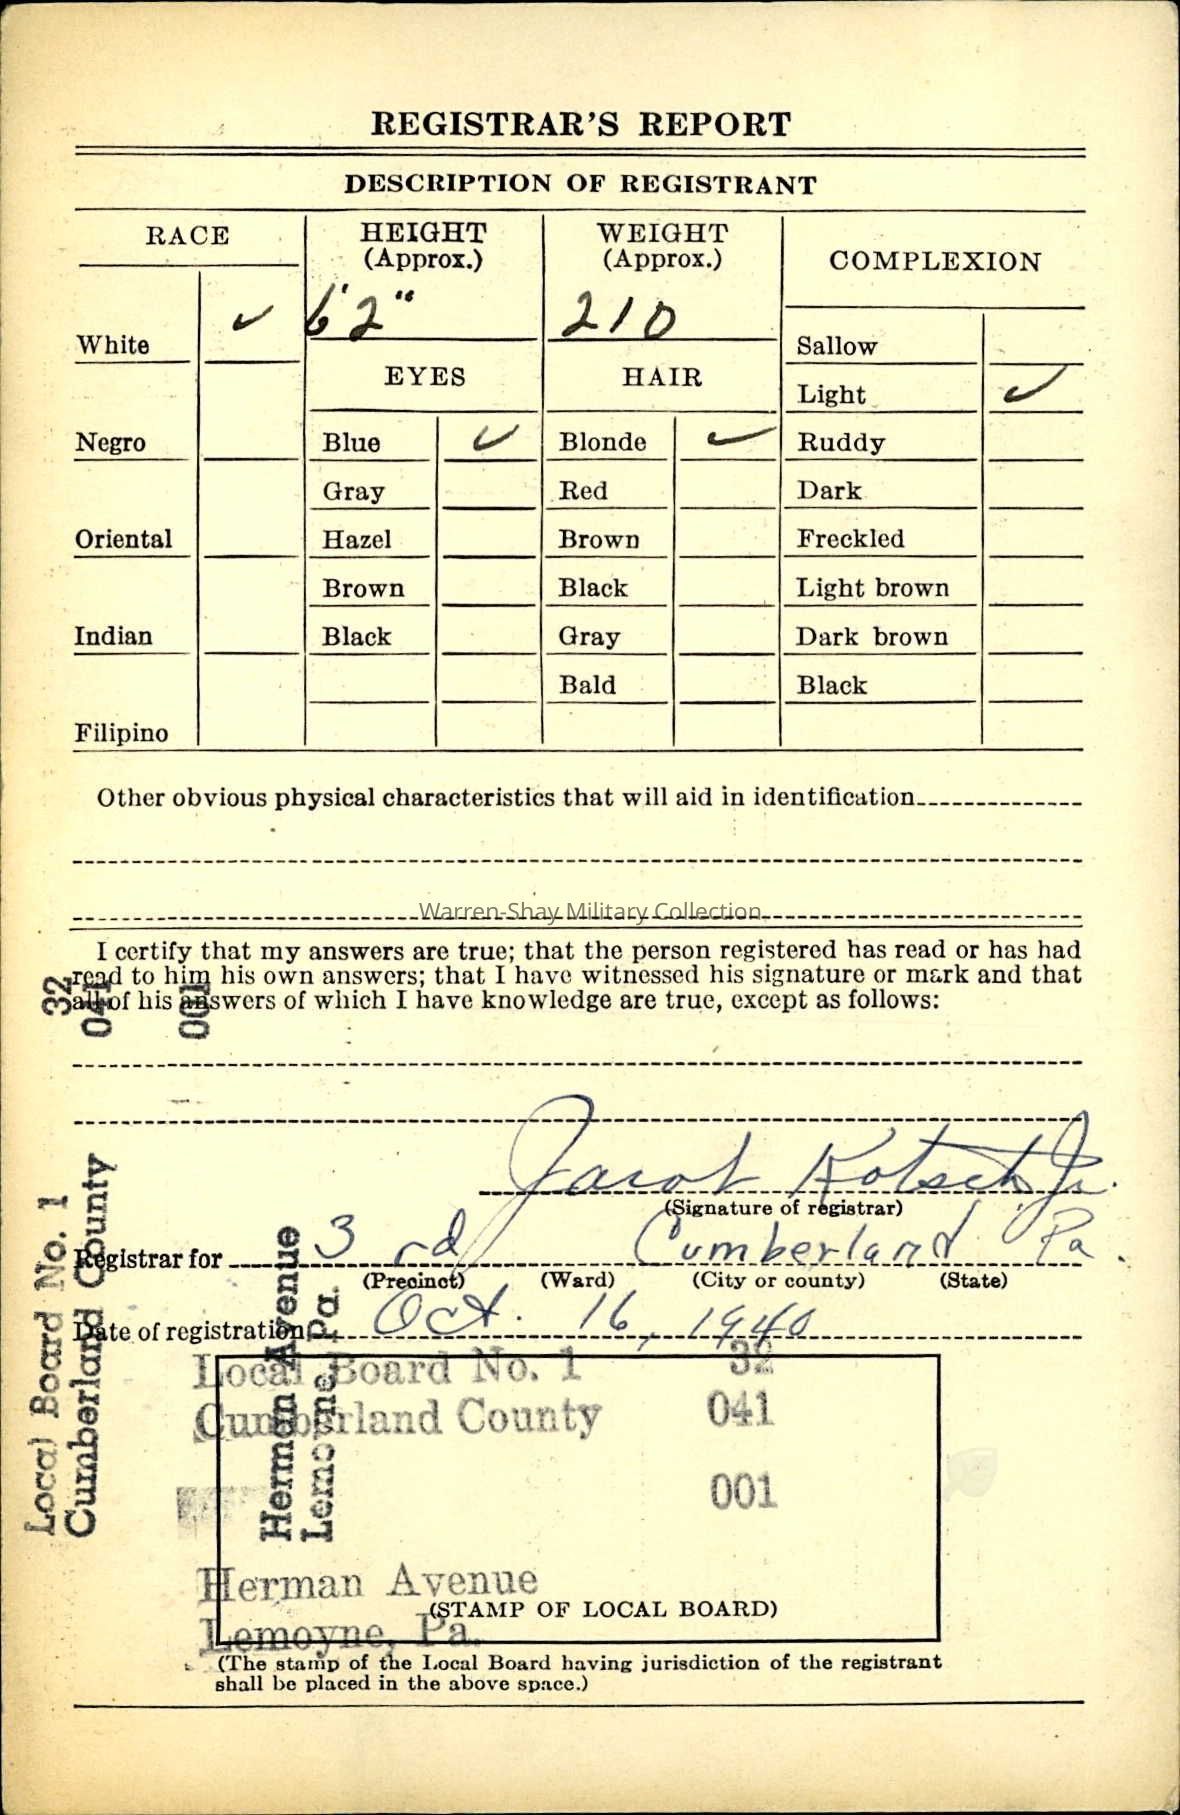 REGISTRAR'S REPORT
DESCRIPTION OF REGISTRANT
RACE
HEIGHT
(Approx.)
WEIGHT
(Approx.)
COMPLEXION
6'2"
210
White ✓
Sallow
EYES
HAIR
Light ✓
Negro
Blue ✓
Blonde ✓
Ruddy
Gray
Red
Dark
Oriental
Hazel
Brown
Freckled
Brown
Black
Light brown
Indian
Black
Gray
Dark brown
Bald
Black
Filipino
Other obvious physical characteristics that will aid in identification
Warren-Shay Military Collection
I certify that my answers are true; that the person registered has read or has had
read to him his own answers; that I have witnessed his signature or mark and that
all of his answers of which I have knowledge are true, except as follows:
Jacob Kotsch Jr.
(Signature of registrar)
Registrar for 3rd Cumberland Pa.
(Precinct) (Ward) (City or county) (State)
Date of registration Oct. 16, 1940
Local Board No. 1 32
Cumberland County 041
001
Herman Avenue
Lemoyne, Pa.
Local Board No. 1 32
Cumberland County 041
001
Herman Avenue
Lemoyne, Pa.
(STAMP OF LOCAL BOARD)
(The stamp of the Local Board having jurisdiction of the registrant
shall be placed in the above space.)